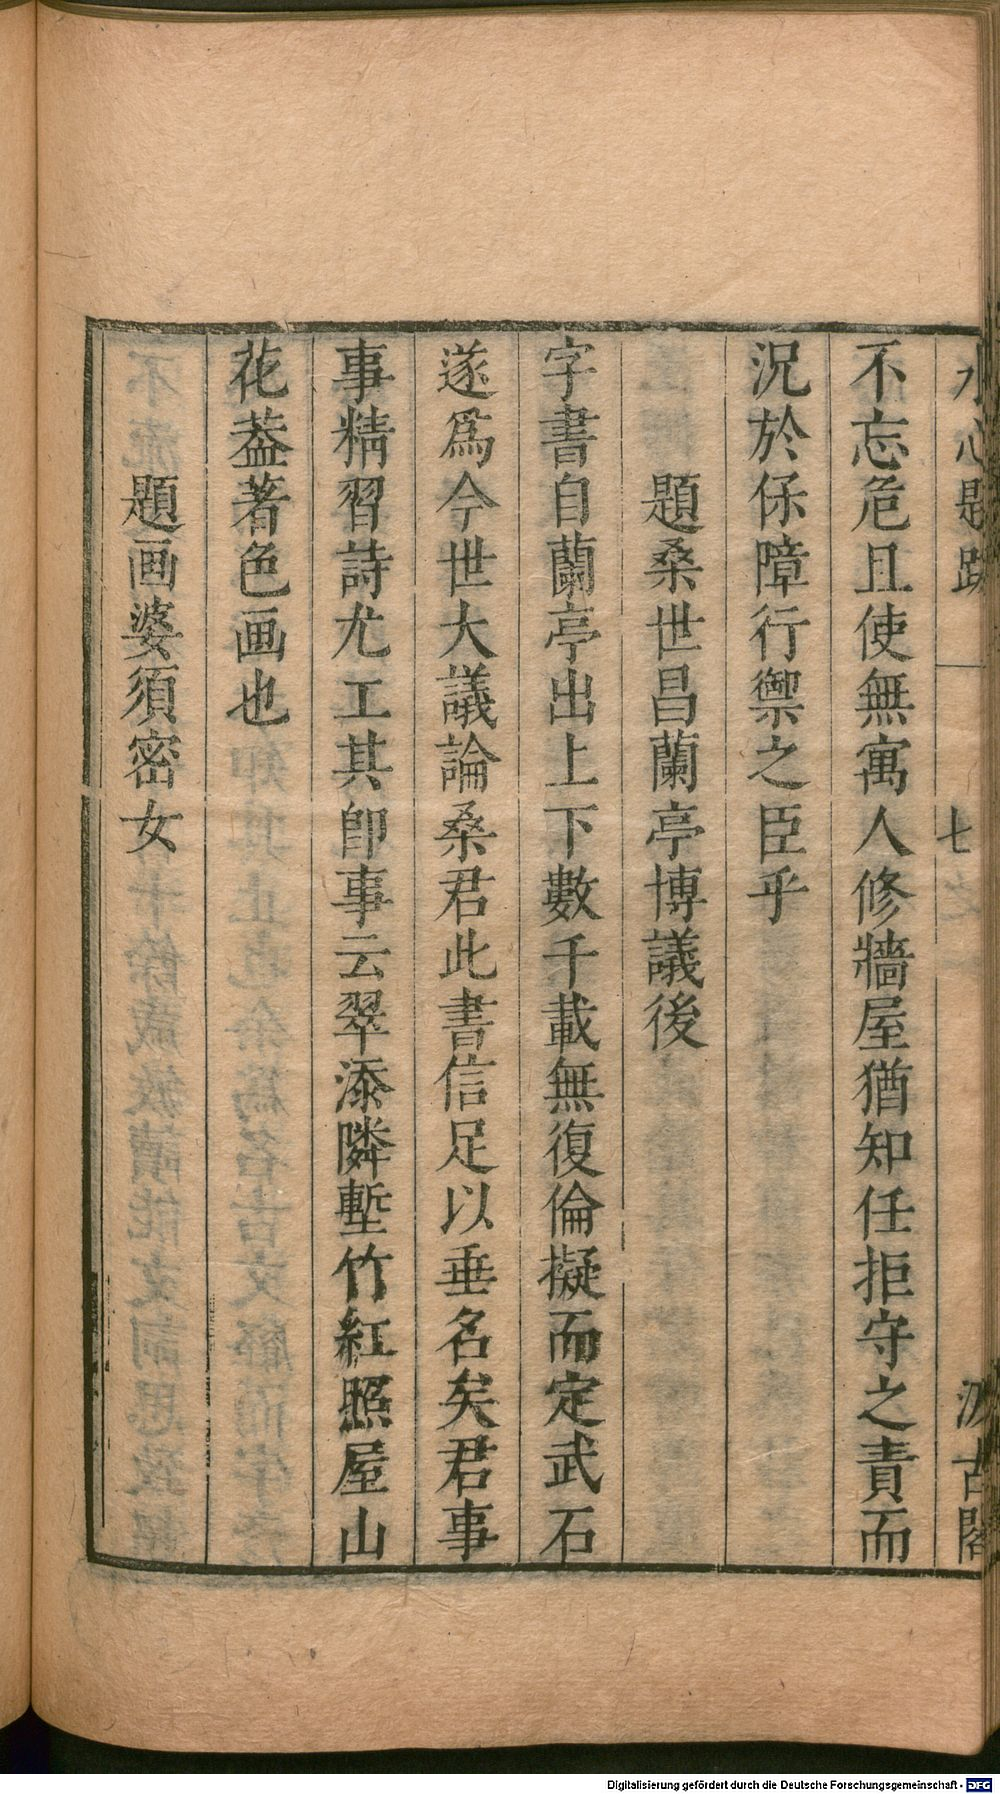 水心題跋 七 汲古閣
不忘危且使無寓人修牆屋猶知任拒守之責而
況於保障行禦之臣乎
題桑世昌蘭亭博議後
字書自蘭亭出上下數千載無復倫擬而定武石
遂爲今世大議論桑君此書信足以垂名矣君事
事精習詩尤工其卽事云翠添隣塹竹紅照屋山
花葢著色画也
題画婆須密女
Digitalisierung gefördert durch die Deutsche Forschungsgemeinschaft - DFG